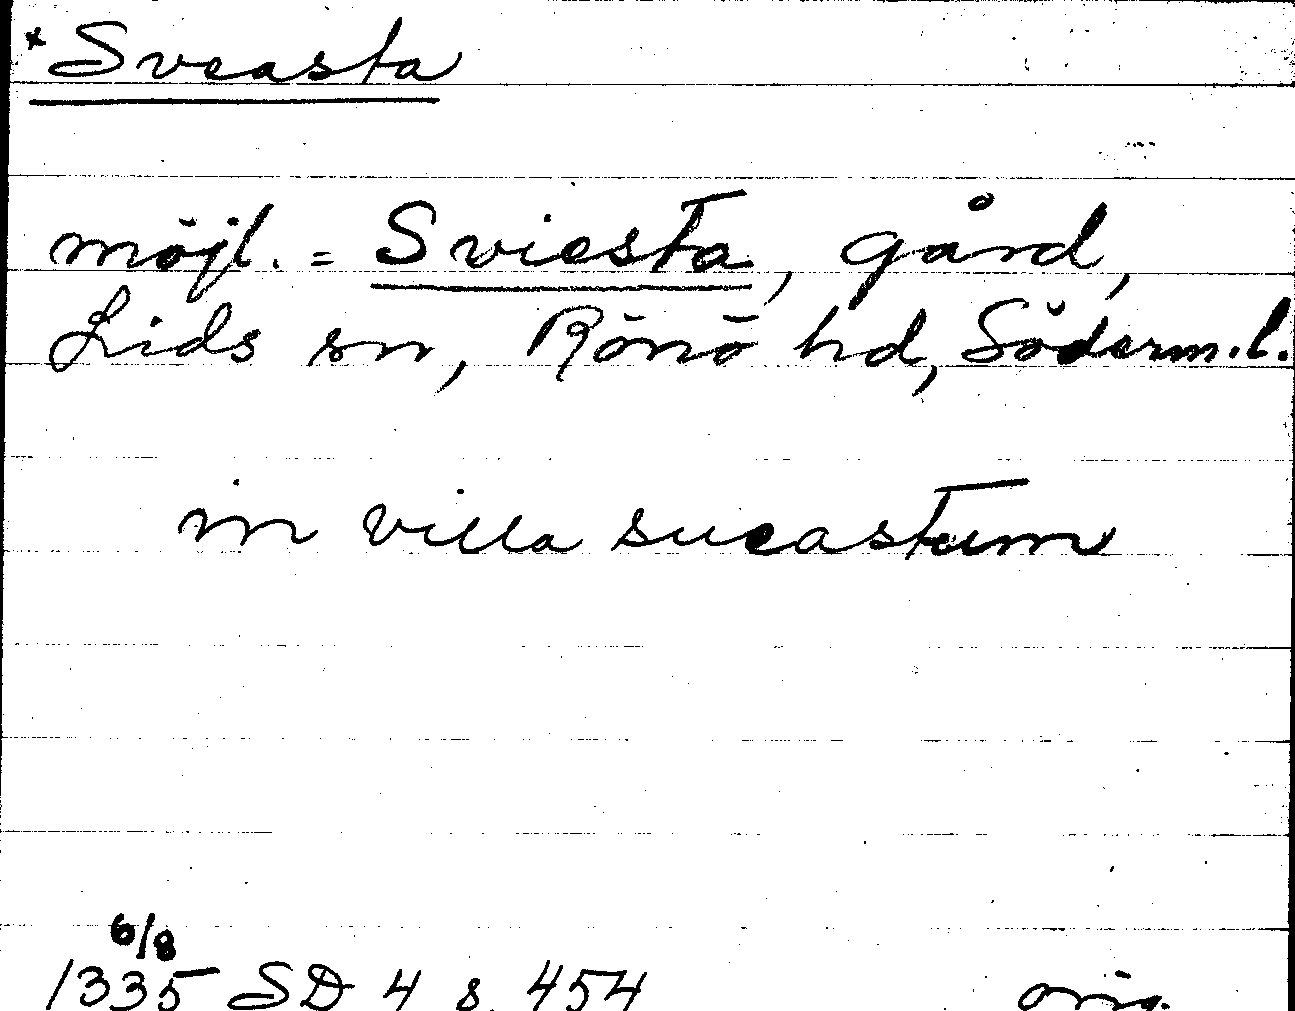 *Sveasta
möjl. = Sviesta, gård,
Lids sn, Rönö hd, Söderm.l.
in villa sueastum
6/8
1335 SD 4 s. 454 orig.